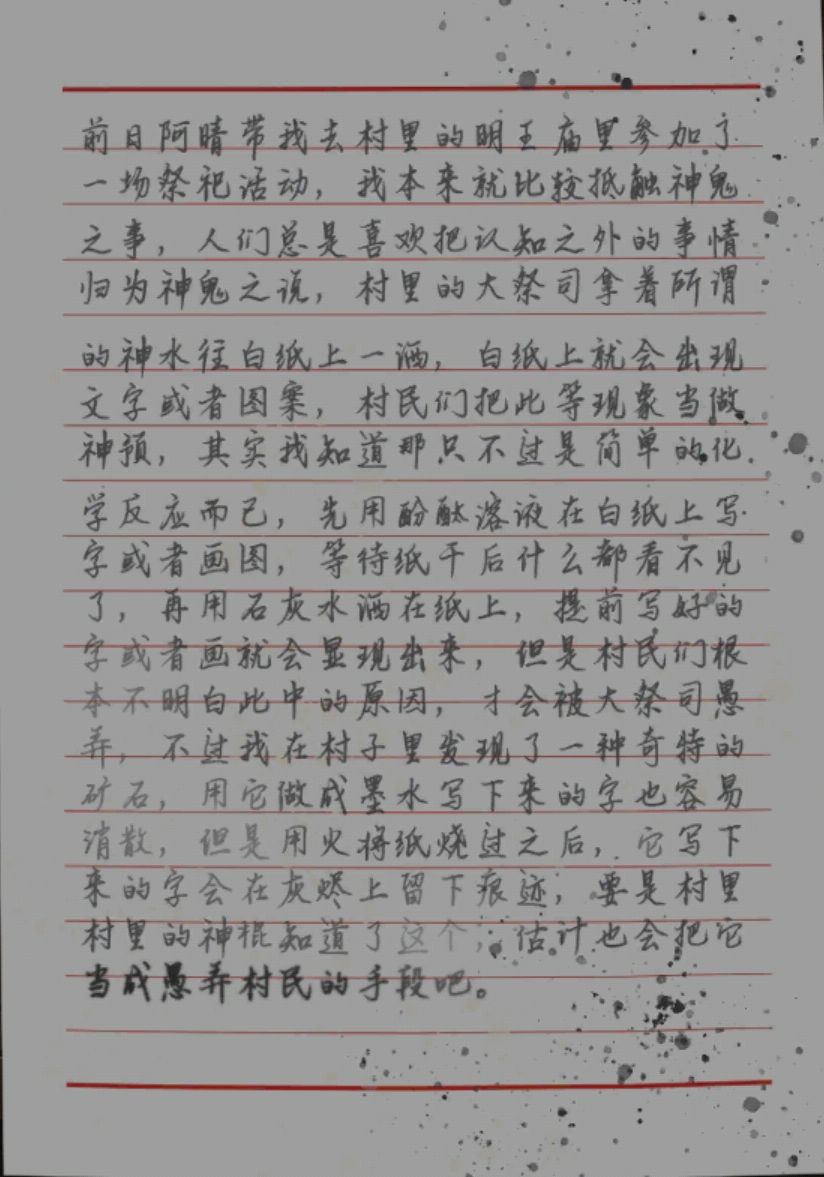 前日阿晴带我去村里的明王庙里参加了
一场祭祀活动，我本来就比较抵触神鬼
之事，人们总是喜欢把认知之外的事情
归为神鬼之说，村里的大祭司拿着所谓
的神水往白纸上一洒，白纸上就会出现
文字或者图案，村民们把此等现象当做
神预，其实我知道那只不过是简单的化
学反应而已，先用酚酞溶液在白纸上写
字或者画图，等待纸干后什么都看不见
了，再用石灰水洒在纸上，提前写好的
字或者画就会显现出来，但是村民们根
本不明白此中的原因，才会被大祭司愚
弄，不过我在村子里发现了一种奇特的
矿石，用它做成墨水写下来的字也容易
消散，但是用火将纸烧过之后，它写下
来的字会在灰烬上留下痕迹，要是村里
村里的神棍知道了这个，估计也会把它
当成愚弄村民的手段吧。